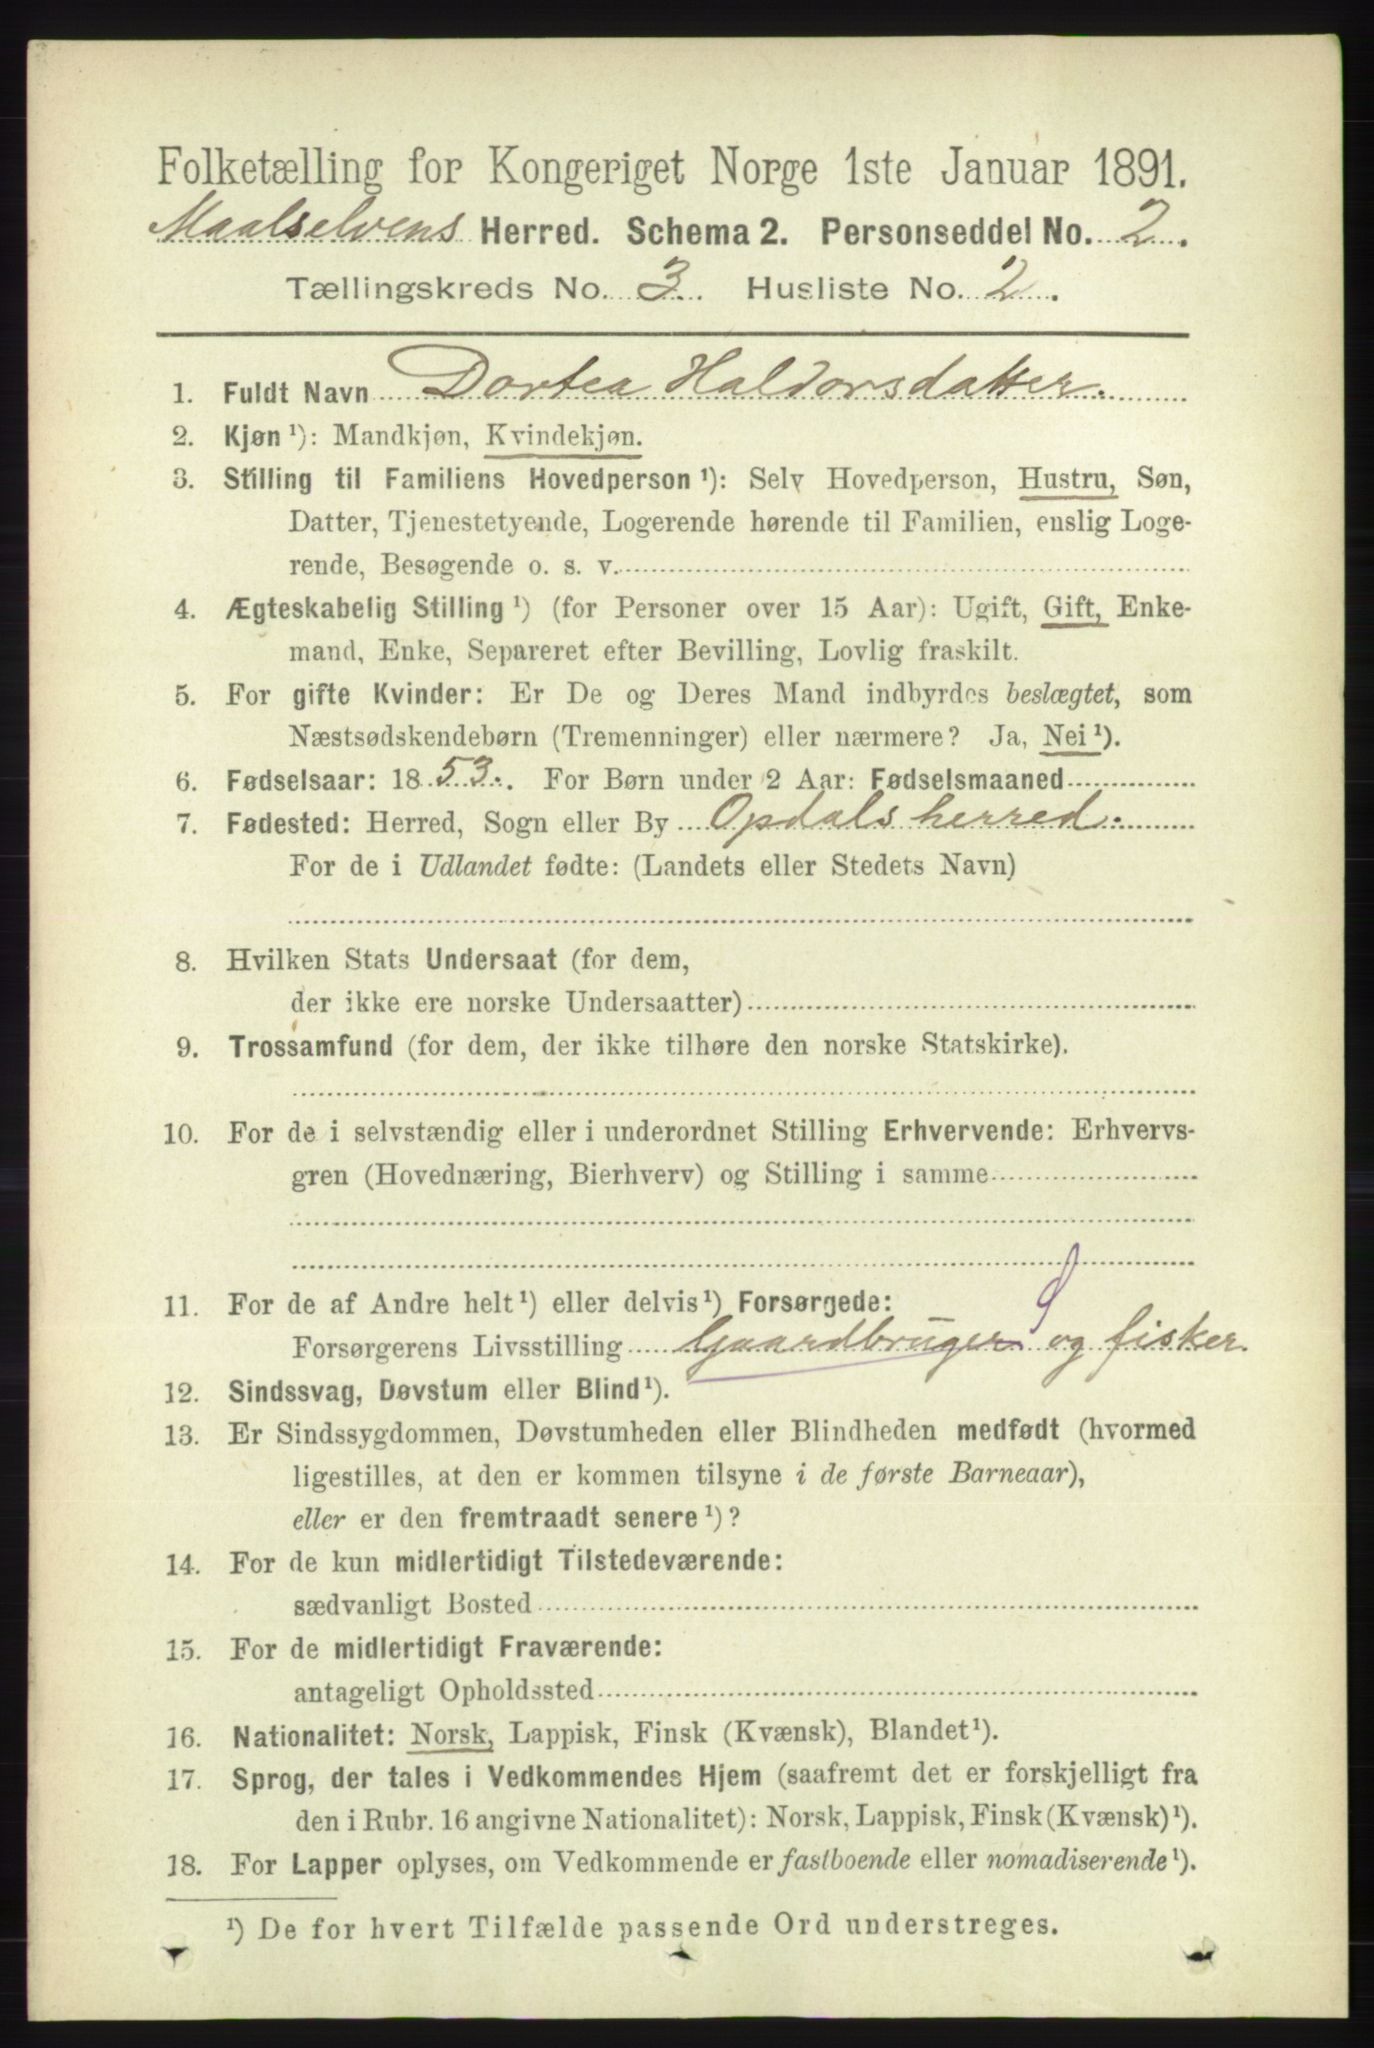 Folketælling for Kongeriget Norge 1ste Januar 1891.
Maalselvens Herred. Schema 2. Personseddel No. 2.
Tællingskreds No. 3. Husliste No. 2.
1. Fuldt Navn Dortea Haldorsdatter.
2. Kjøn ¹): Mandkjøn, Kvindekjøn.
3. Stilling til Familiens Hovedperson ¹): Selv Hovedperson, Hustru, Søn,
Datter, Tjenestetyende, Logerende hørende til Familien, enslig Loge-
rende, Besøgende o. s. v.
4. Ægteskabelig Stilling ¹) (for Personer over 15 Aar): Ugift, Gift, Enke-
mand, Enke, Separeret efter Bevilling, Lovlig fraskilt.
5. For gifte Kvinder: Er De og Deres Mand indbyrdes beslægtet, som
Næstsødskendebørn (Tremenninger) eller nærmere? Ja, Nei ¹).
6. Fødselsaar: 1853. For Børn under 2 Aar: Fødselsmaaned
7. Fødested: Herred, Sogn eller By Opdals herred.
For de i Udlandet fødte: (Landets eller Stedets Navn)
8. Hvilken Stats Undersaat (for dem,
der ikke ere norske Undersaatter)
9. Trossamfund (for dem, der ikke tilhøre den norske Statskirke).
10. For de i selvstændig eller i underordnet Stilling Erhvervende: Erhvervs-
gren (Hovednæring, Bierhverv) og Stilling i samme
11. For de af Andre helt ¹) eller delvis ¹) Forsørgede:
Forsørgerens Livsstilling Gaardbruger og fisker.
12. Sindssvag, Døvstum eller Blind ¹).
13. Er Sindssygdommen, Døvstumheden eller Blindheden medfødt (hvormed
ligestilles, at den er kommen tilsyne i de første Barneaar),
eller er den fremtraadt senere ¹)?
14. For de kun midlertidigt Tilstedeværende:
sædvanligt Bosted
15. For de midlertidigt Fraværende:
antageligt Opholdssted
16. Nationalitet: Norsk, Lappisk, Finsk (Kvænsk), Blandet ¹).
17. Sprog, der tales i Vedkommendes Hjem (saafremt det er forskjelligt fra
den i Rubr. 16 angivne Nationalitet): Norsk, Lappisk, Finsk (Kvænsk) ¹).
18. For Lapper oplyses, om Vedkommende er fastboende eller nomadiserende ¹).
¹) De for hvert Tilfælde passende Ord understreges.